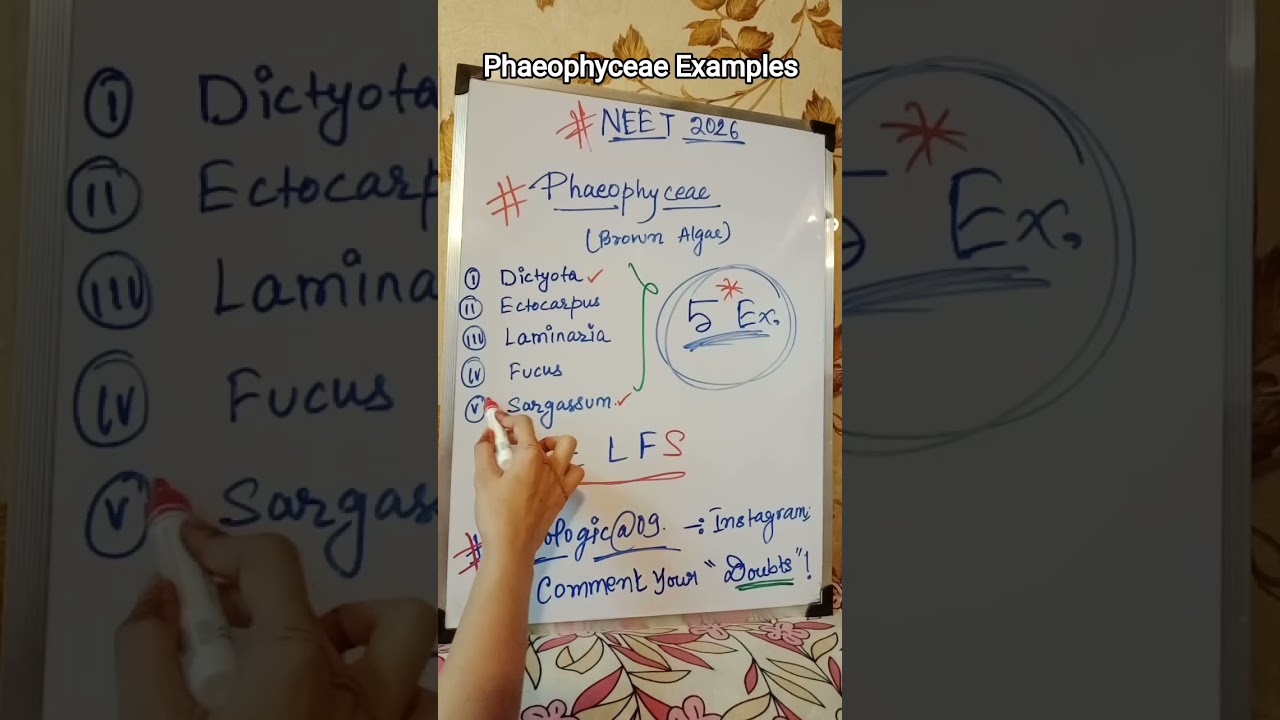 Phaeophyceae Examples
# NEET 2026
# Phaeophyceae
(Brown Algae)
i Dictyota ✓
ii Ectocarpus
iii Laminaria
iv Fucus
v Sargassum ✓
5 * Ex.
L F S
#ologic@09. -: Instagram;
Comment Your "Doubts"!